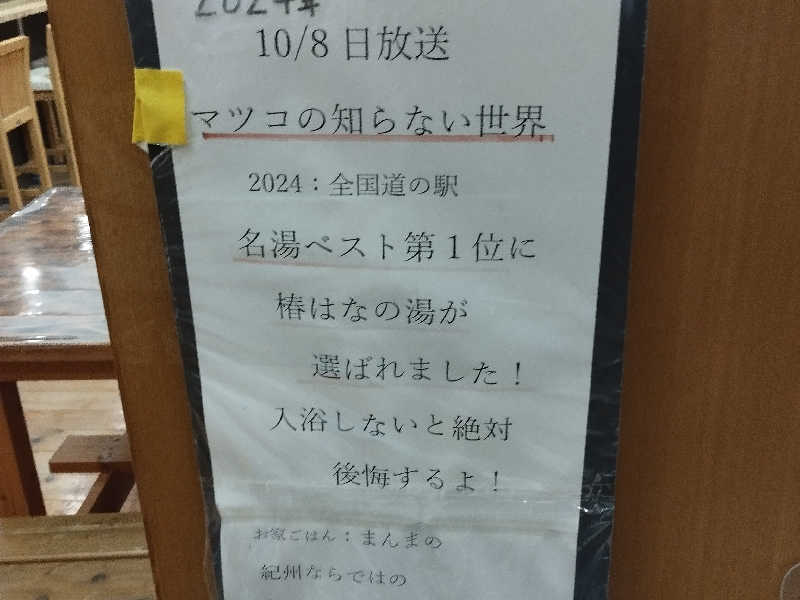 2024年
10/8日放送
マツコの知らない世界
2024：全国道の駅
名湯ベスト第1位に
椿はなの湯が
選ばれました！
入浴しないと絶対
後悔するよ！
お家ごはん：まんまの
紀州ならではの